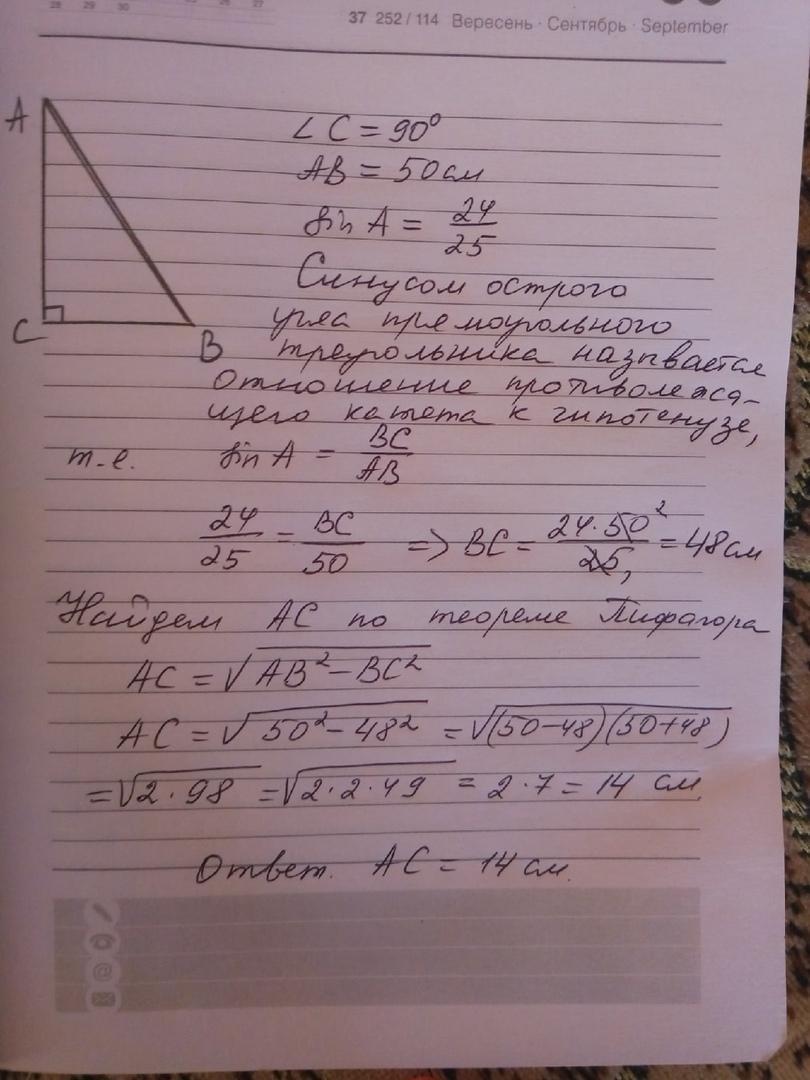 28 29 30 26 27
37 252 / 114 Вересень · Сентябрь · September
A
C
B
∠ C = 90°
AB = 50 см
sin A = 24/25
Синусом острого
угла прямоугольного
треугольника называется
отношение противолежа-
щего катета к гипотенузе,
т.е. sin A = BC/AB
24/25 = BC/50 => BC = 24·50²/25₁ = 48 см
Найдем AC по теореме Пифагора
AC = √AB² − BC²
AC = √50² − 48² = √(50−48)(50+48)
= √2·98 = √2·2·49 = 2·7 = 14 см
Ответ. AC = 14 см.